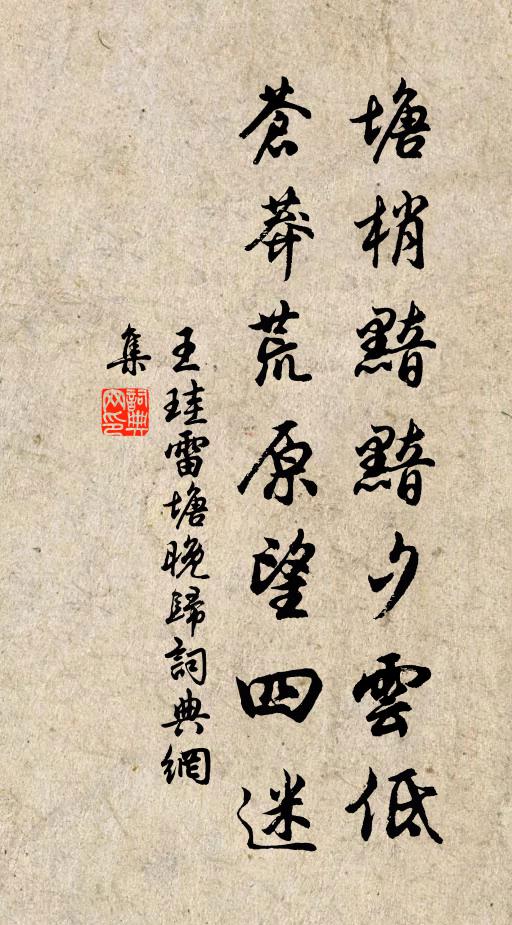 塘梢黯黯夕雲低
蒼莽荒原望四迷
王珪雷塘晚歸詞典網
集
詞典
网印